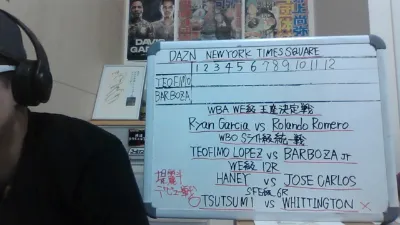 DAVID
DAZN NEWYORK TIMES SQUARE
1 2 3 4 5 6 7 8 9 10 11 12
TEOFIMO
BARBOZA
WBA WE級 王座決定戦
Ryan Garcia vs Rolando Romero
WBO Sライト級統一戦
TEOFIMO LOPEZ vs BARBOZA JR
WE級 12R
HANEY vs JOSE CARLOS
SFE級 6R
堤麗斗
デビュー戦
○TSUTSUMI vs WHITTINGTON ×